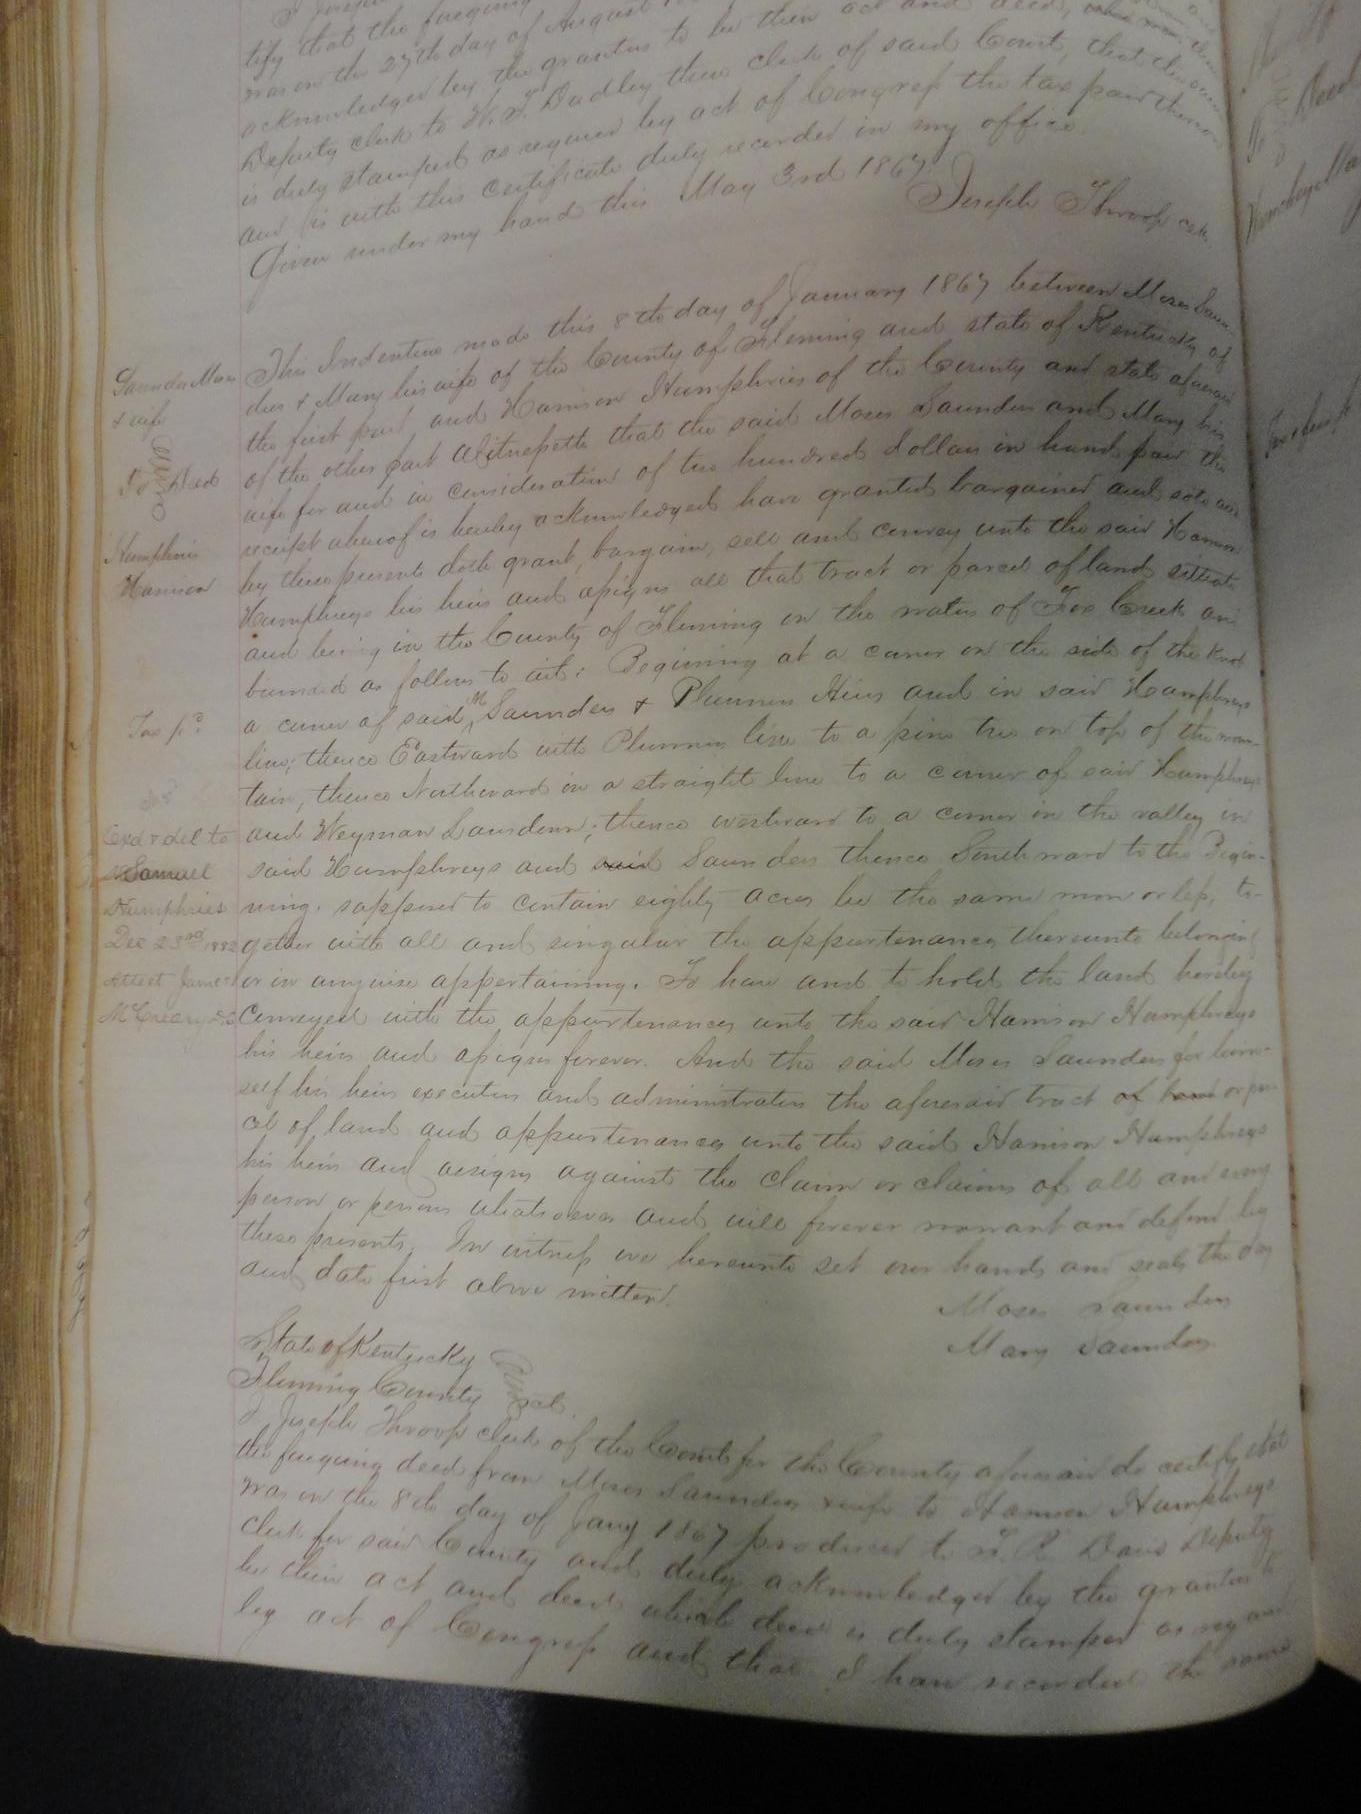 I Joseph
tify that the foregoing
was on the 27th day of August
acknowledged by the grantors to be their act and deed,
Deputy clerk to W. T. Dudley then clerk of said Court, that the same
is duly stamped as required by act of Congress the tax paid thereon
and is with this certificate duly recorded in my office.
Given under my hand this May 3rd 1867.
Joseph Throop clk.
This Indenture made this 8th day of January 1867 between Moses Saun-
ders & Mary his wife of the County of Fleming and state of Kentucky of
the first part and Harrison Humphries of the County and state aforesaid
of the other part Witnesseth that the said Moses Saunders and Mary his
wife for and in consideration of two hundred dollars in hand paid the
receipt whereof is hereby acknowledged have granted bargained and sold and
by these presents doth grant, bargain, sell and convey unto the said Harrison
Humphreys his heirs and assigns all that tract or parcel of land situate
and being in the County of Fleming on the waters of Fox Creek and
bounded as follows to wit: Beginning at a corner on the side of the Knob
a corner of said M Saunders & Plummers Heirs and in said Humphreys
line; thence Eastward with Plummers line to a pine tree on top of the moun-
tain, thence Northward in a straight line to a corner of said Humphreys
and Weyman Saunders; thence westward to a corner in the valley in
said Humphreys and said Saunders thence Southward to the Begin-
ning. supposed to contain eighty acres be the same more or less, to-
gether with all and singular the appurtenances thereunto belonging
or in anywise appertaining. To have and to hold the land hereby
Conveyed with the appurtenances unto the said Harrison Humphreys
his heirs and assigns forever. And the said Moses Saunders for him-
self his heirs executors and administrators the aforesaid tract of land or par-
cel of land and appurtenances unto the said Harrison Humphreys
his heirs and assigns against the claim or claims of all and every
person or persons whatsoever and will forever warrant and defend by
these presents. In witness we hereunto set our hands and seals the day
and date first above written.
Moses Saunders
Mary Saunders
State of Kentucky
Fleming County Sct.
I Joseph Throop clerk of the Court for the County aforesaid do certify that
the foregoing deed from Moses Saunders & wife to Harrison Humphreys
was on the 8th day of Jany 1867 produced to T. R. Davis Deputy
clerk for said County and duly acknowledged by the grantors to
be their act and deed which deed is duly stamped as reqd
by act of Congress and that I have recorded the same
Saunders Moses
& wife
To Deed
Humphries
Harrison
Tax pd
Exd & del to
Samuel
Humphries
Dec 23rd 1882
Attest James
McCreary